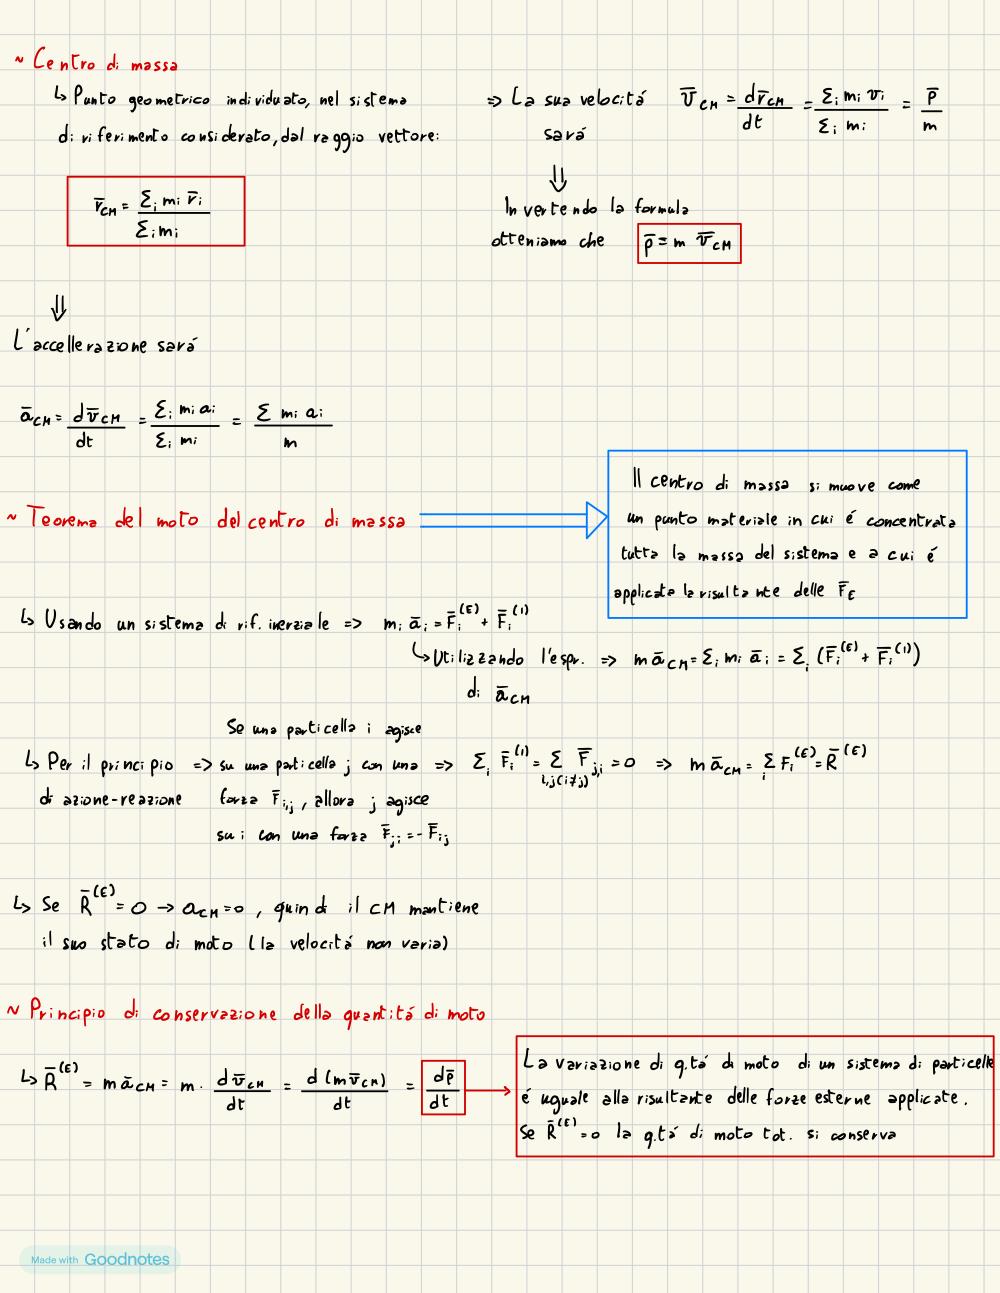 ~ Centro di massa
↳ Punto geometrico individuato, nel sistema
di riferimento considerato, dal raggio vettore:
r̅_CM = Σ_i m_i r̅_i / Σ_i m_i
=> La sua velocitá v̅_CM = dr̅_CM / dt = Σ_i m_i v_i / Σ_i m_i = p̅ / m
sará
⇓
Invertendo la formula
otteniamo che p̅ = m v̅_CM
⇓
L'accellerazione sará
a̅_CM = dv̅_CM / dt = Σ_i m_i a_i / Σ_i m_i = Σ m_i a_i / m
~ Teorema del moto del centro di massa
Il centro di massa si muove come
un punto materiale in cui é concentrata
tutta la massa del sistema e a cui é
applicata la risultante delle F̅_E
↳ Usando un sistema di rif. inerziale => m_i a̅_i = F̅_i^(E) + F̅_i^(I)
↳ Utilizzando l'espr. => m a̅_CM = Σ_i m_i a̅_i = Σ_i (F̅_i^(E) + F̅_i^(I))
di a̅_CM
Se una particella i agisce
↳ Per il principio => su una particella j con una => Σ_i F̅_i^(I) = Σ_i,j(i≠j) F̅_j,i = 0 => m a̅_CM = Σ_i F_i^(E) = R̅^(E)
di azione-reazione forza F̅_i,j, allora j agisce
su i con una forza F̅_ji = - F̅_ij
↳ Se R̅^(E) = 0 → a_CM = 0, quindi il CM mantiene
il suo stato di moto (la velocitá non varia)
~ Principio di conservazione della quantitá di moto
↳ R̅^(E) = m a̅_CM = m · dv̅_CM / dt = d (m v̅_CM) / dt = dp̅ / dt
La variazione di q.tá di moto di un sistema di particelle
é uguale alla risultante delle forze esterne applicate.
Se R̅^(E) = 0 la q.tá di moto tot. si conserva
Made with Goodnotes